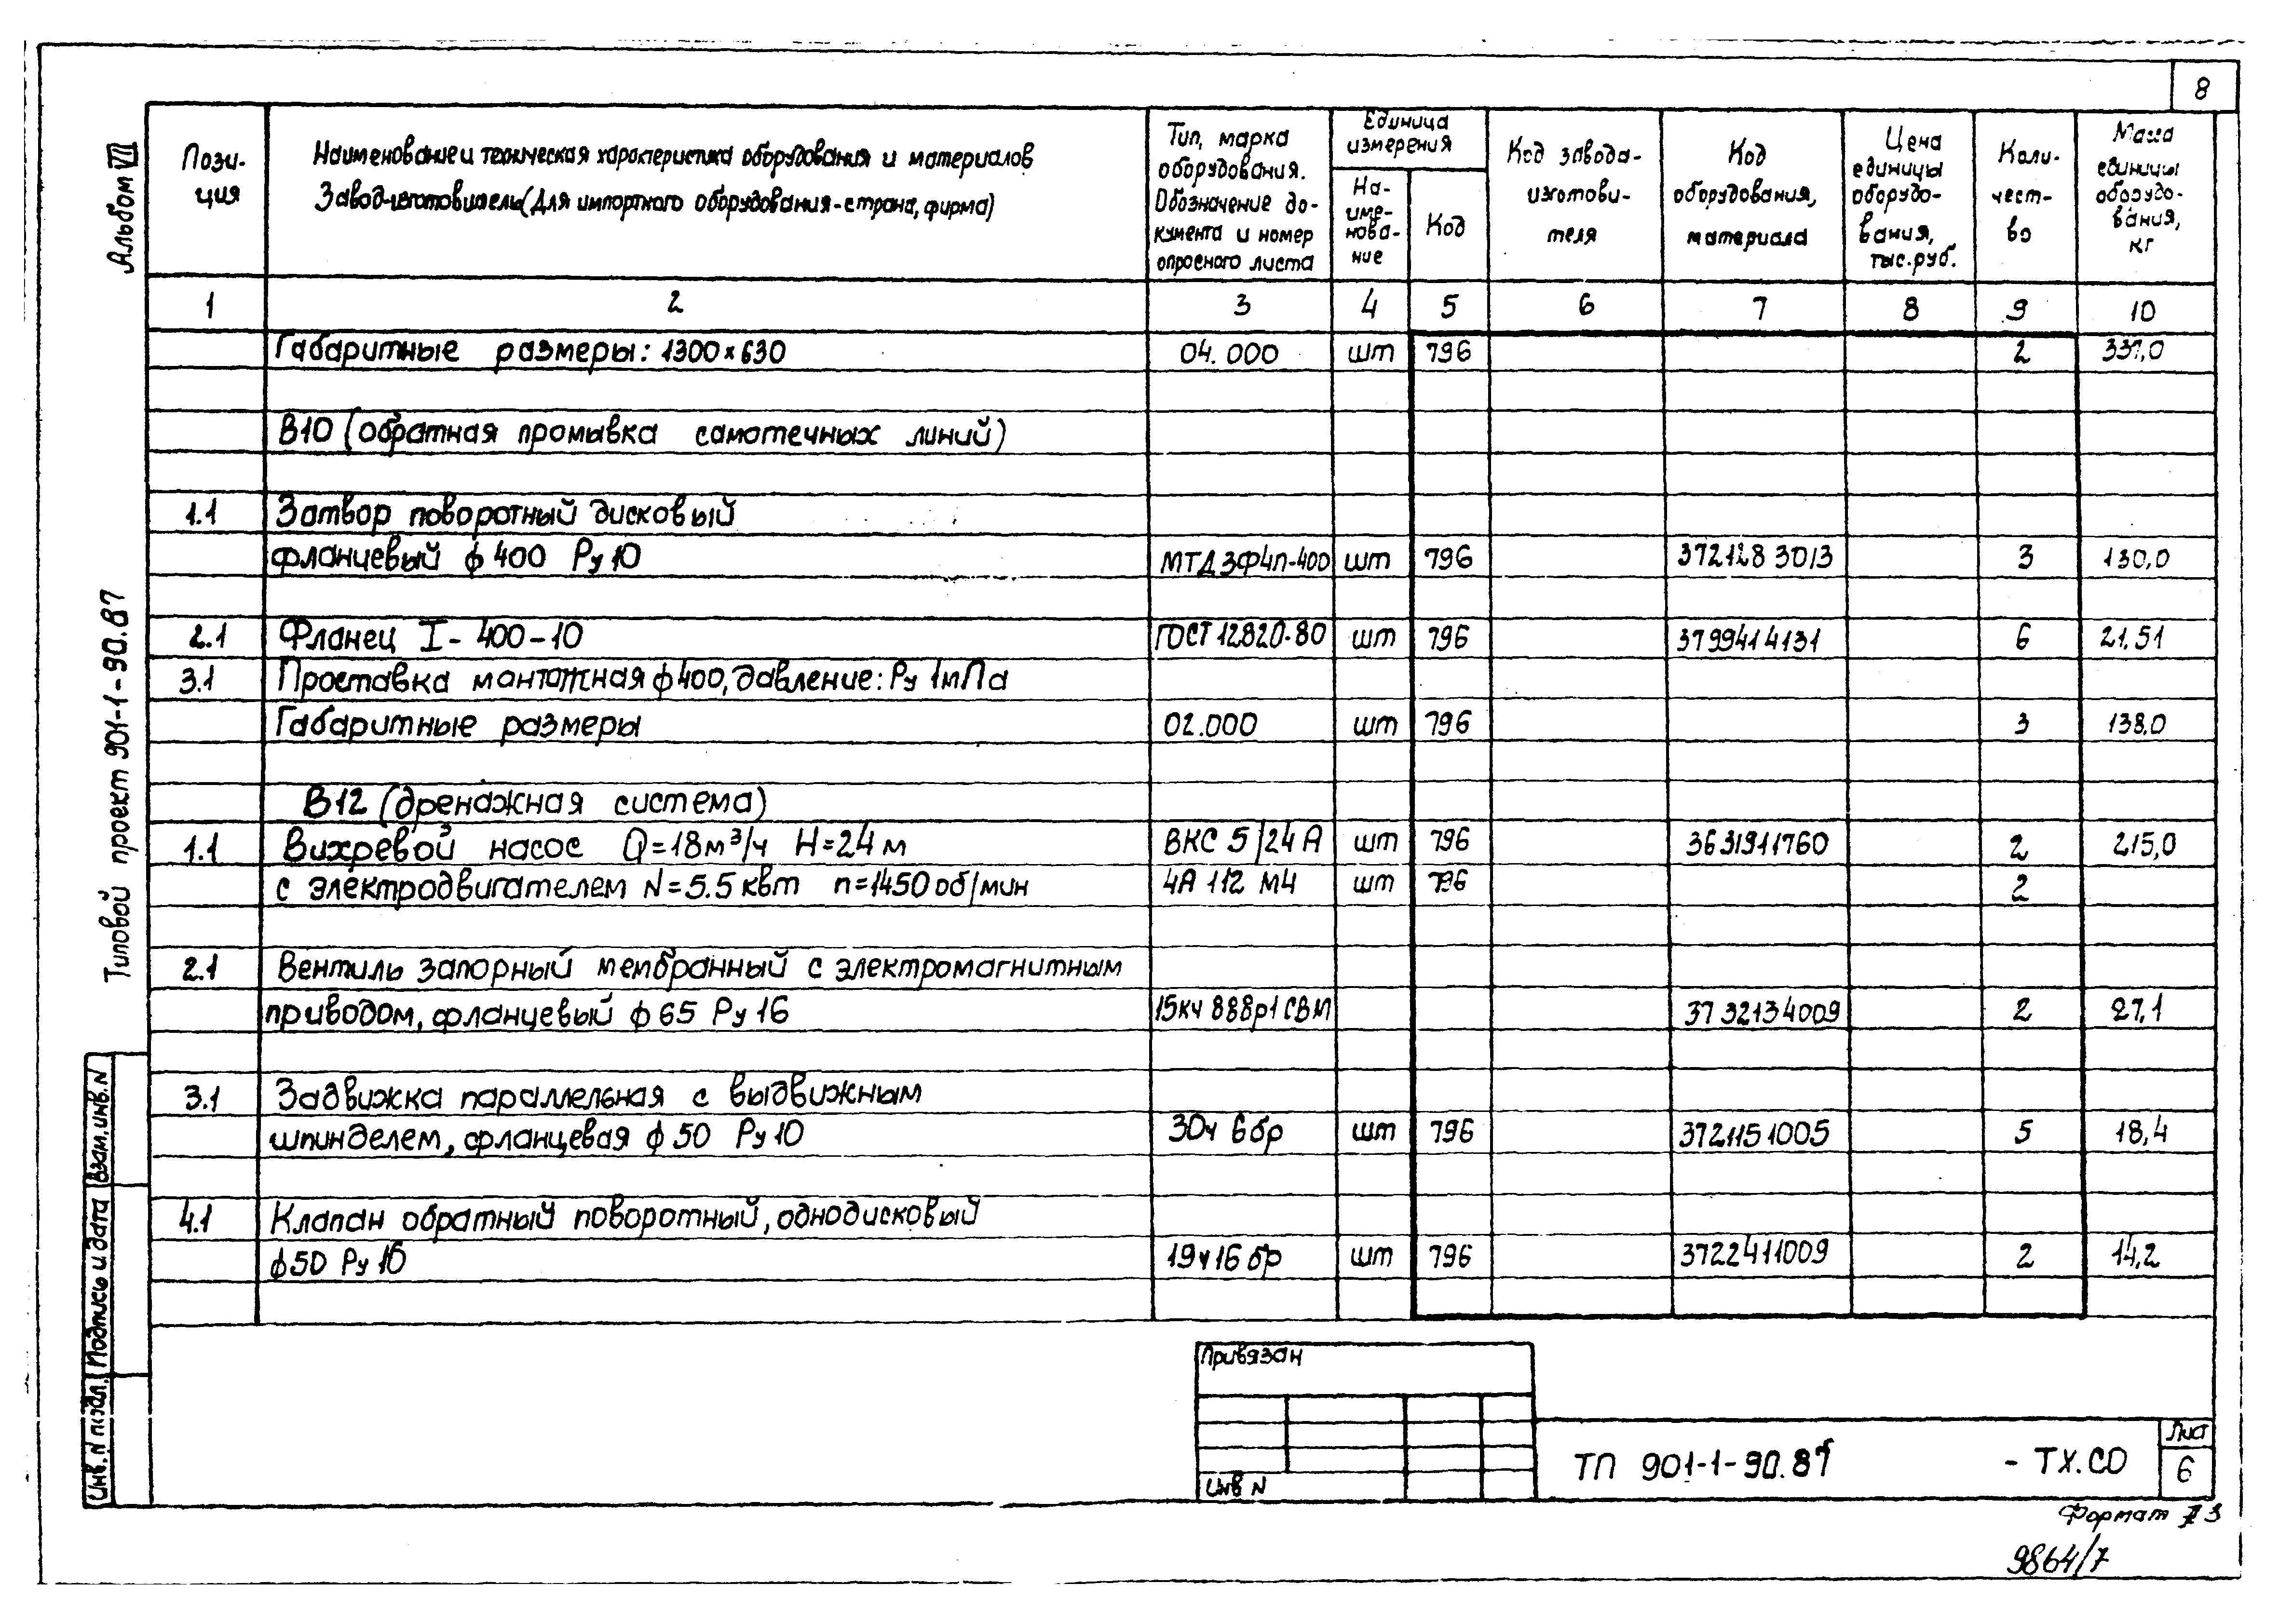 8
Альбом VII
Типовой проект 901-1-90.87
Пози-
ция
Наименование и техническая характеристика оборудования и материалов
Завод-изготовитель (для импортного оборудования-страна, фирма)
Тип, марка
оборудования.
Обозначение до-
кумента и номер
опросного листа
Единица
измерения
На-
име-
нова-
ние
Код
Код завода-
изготови-
теля
Код
оборудования,
материала
Цена
единицы
оборудо-
вания,
тыс.руб.
Коли-
чест-
во
Масса
единицы
оборудо-
вания,
кг
1 2 3 4 5 6 7 8 9 10
Габаритные размеры: 1300×630 04.000 шт 796 2 331,0
В10 (обратная промывка самотечных линий)
1.1 Затвор поворотный дисковый
фланцевый ϕ 400 Ру 10 МТД3Ф4п-400 шт 796 372128 3013 3 130,0
2.1 Фланец I-400-10 ГОСТ 12820-80 шт 796 3799414131 6 21,51
3.1 Проставка монтажная ϕ400, давление: Ру 1мПа
Габаритные размеры 02.000 шт 796 3 138,0
В12 (дренажная система)
1.1 Вихревой насос Q=18м³/ч H=24 м ВКС 5/24 А шт 796 3631911760 2 215,0
с электродвигателем N=5.5 квт n=1450 об/мин 4А 112 М4 шт 796 2
2.1 Вентиль запорный мембранный с электромагнитным
приводом, фланцевый ϕ 65 Ру 16 15кч 888р1 СВМ 3732134009 2 27,1
3.1 Задвижка параллельная с выдвижным
шпинделем, фланцевая ϕ 50 Ру 10 30ч 6 бр шт 796 3721151005 5 18,4
4.1 Клапан обратный поворотный, однодисковый
ϕ50 Ру 16 19ч16 бр шт 796 3722411009 2 14,2
Взам.инв.N
Подпись и дата
Инв.N подл.
Привязан
Инв N
ТП 901-1-90.87 - ТХ.СО
Лист
6
Формат 3
9864/7